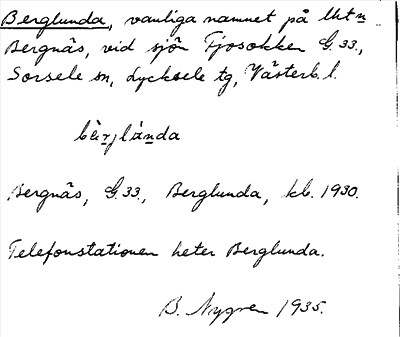 Berglunda, vanliga namnet på lht n
Bergnäs, vid sjön Fjosokken G.33.,
Sorsele sn, Lycksele tg, Västerb. l.
Bergnäs, G.33., Berglunda, kb. 1930.
Telefonstationen heter Berglunda.
B. Nygren 1935.